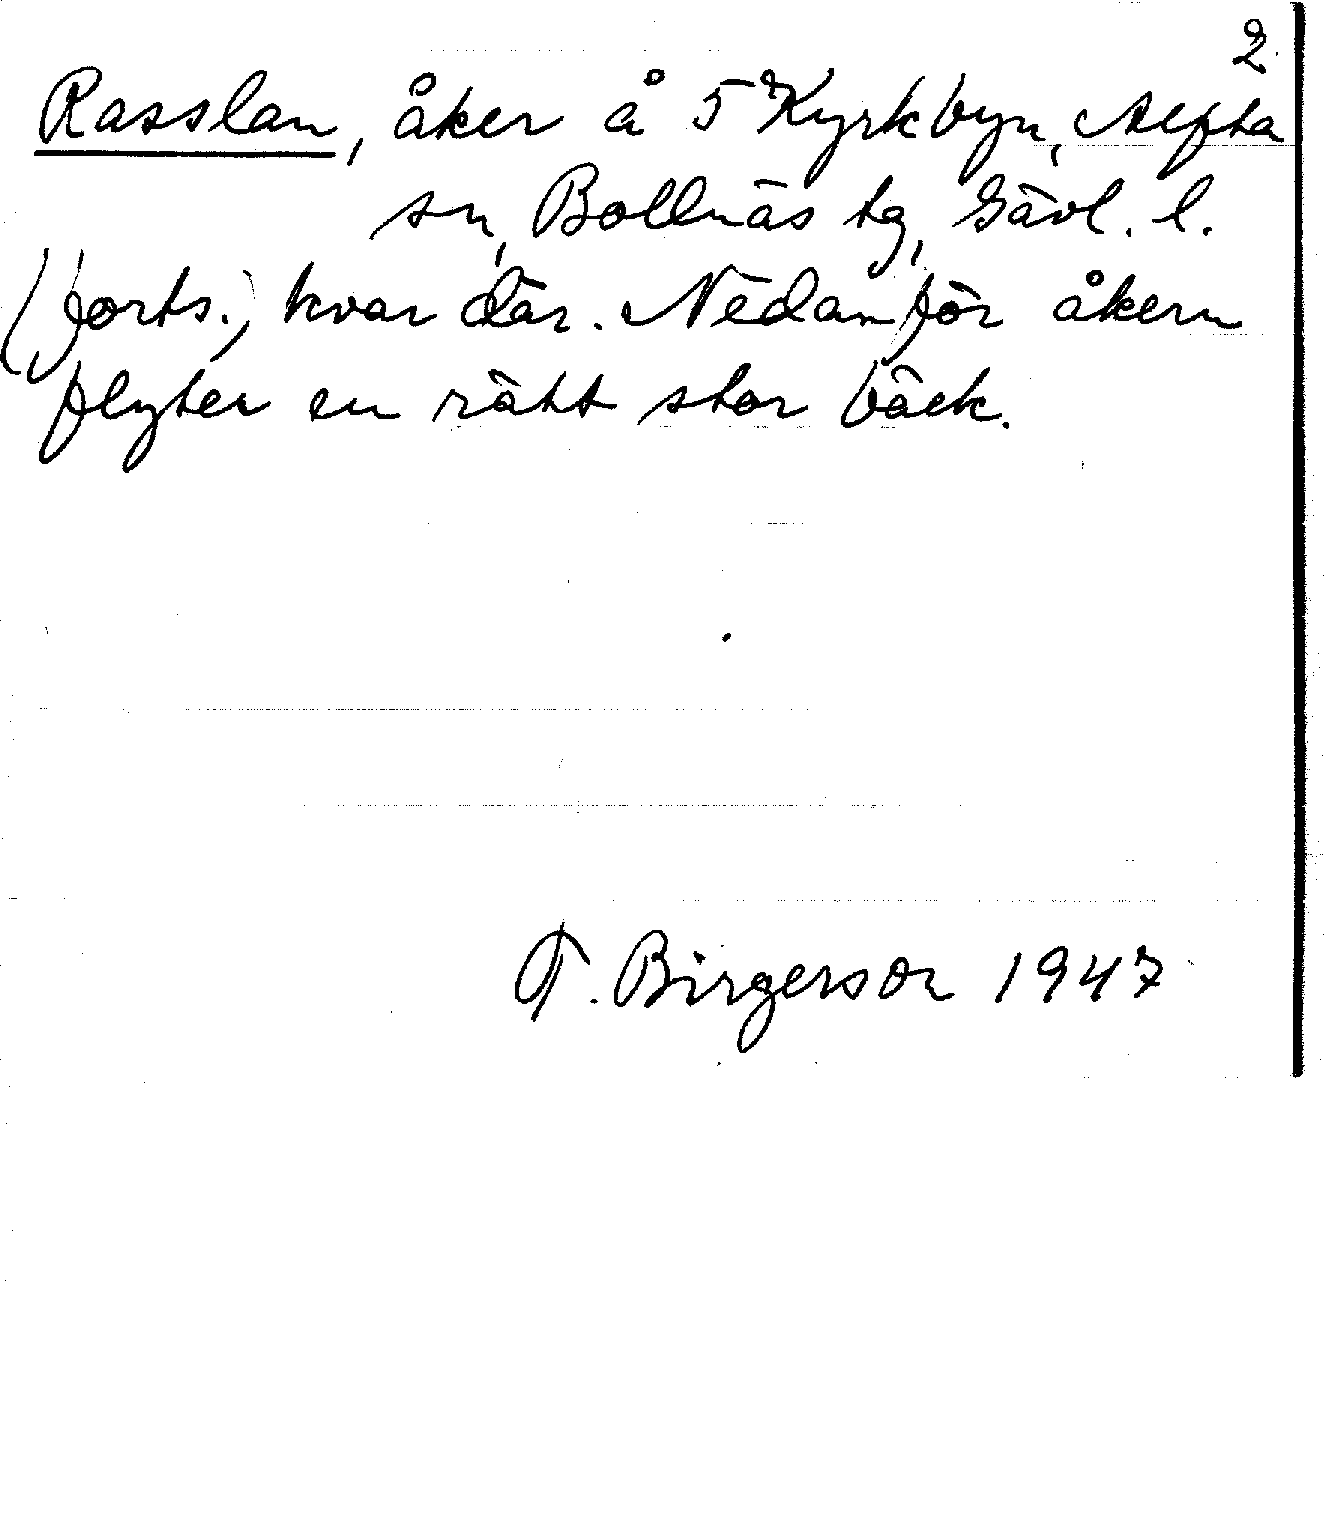 2.
Rasslan, åker å 5 Kyrkbyn, Alfta
sn, Bollnäs tg, Gävl. l.
(forts.) kvar där. Nedanför åkern
flyter en rätt stor bäck.
T. Birgerson 1947